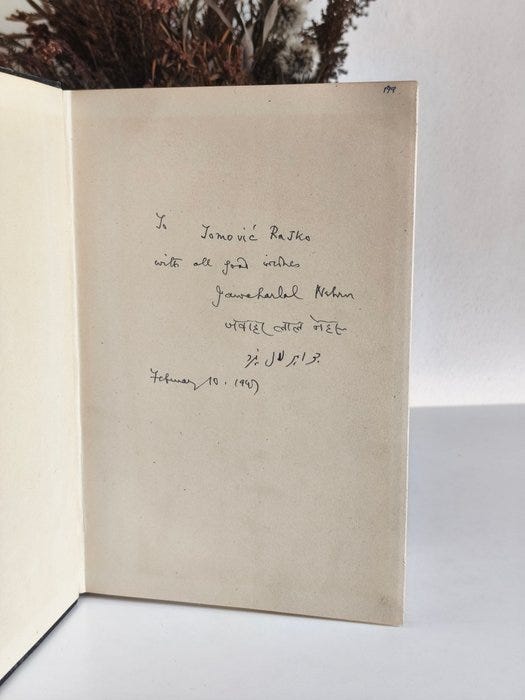 To Tomović Raјko
with all good wishes
Jawaharlal Nehru
जवाहर लाल नेहरू
جواہر لال نہرو
February 10.